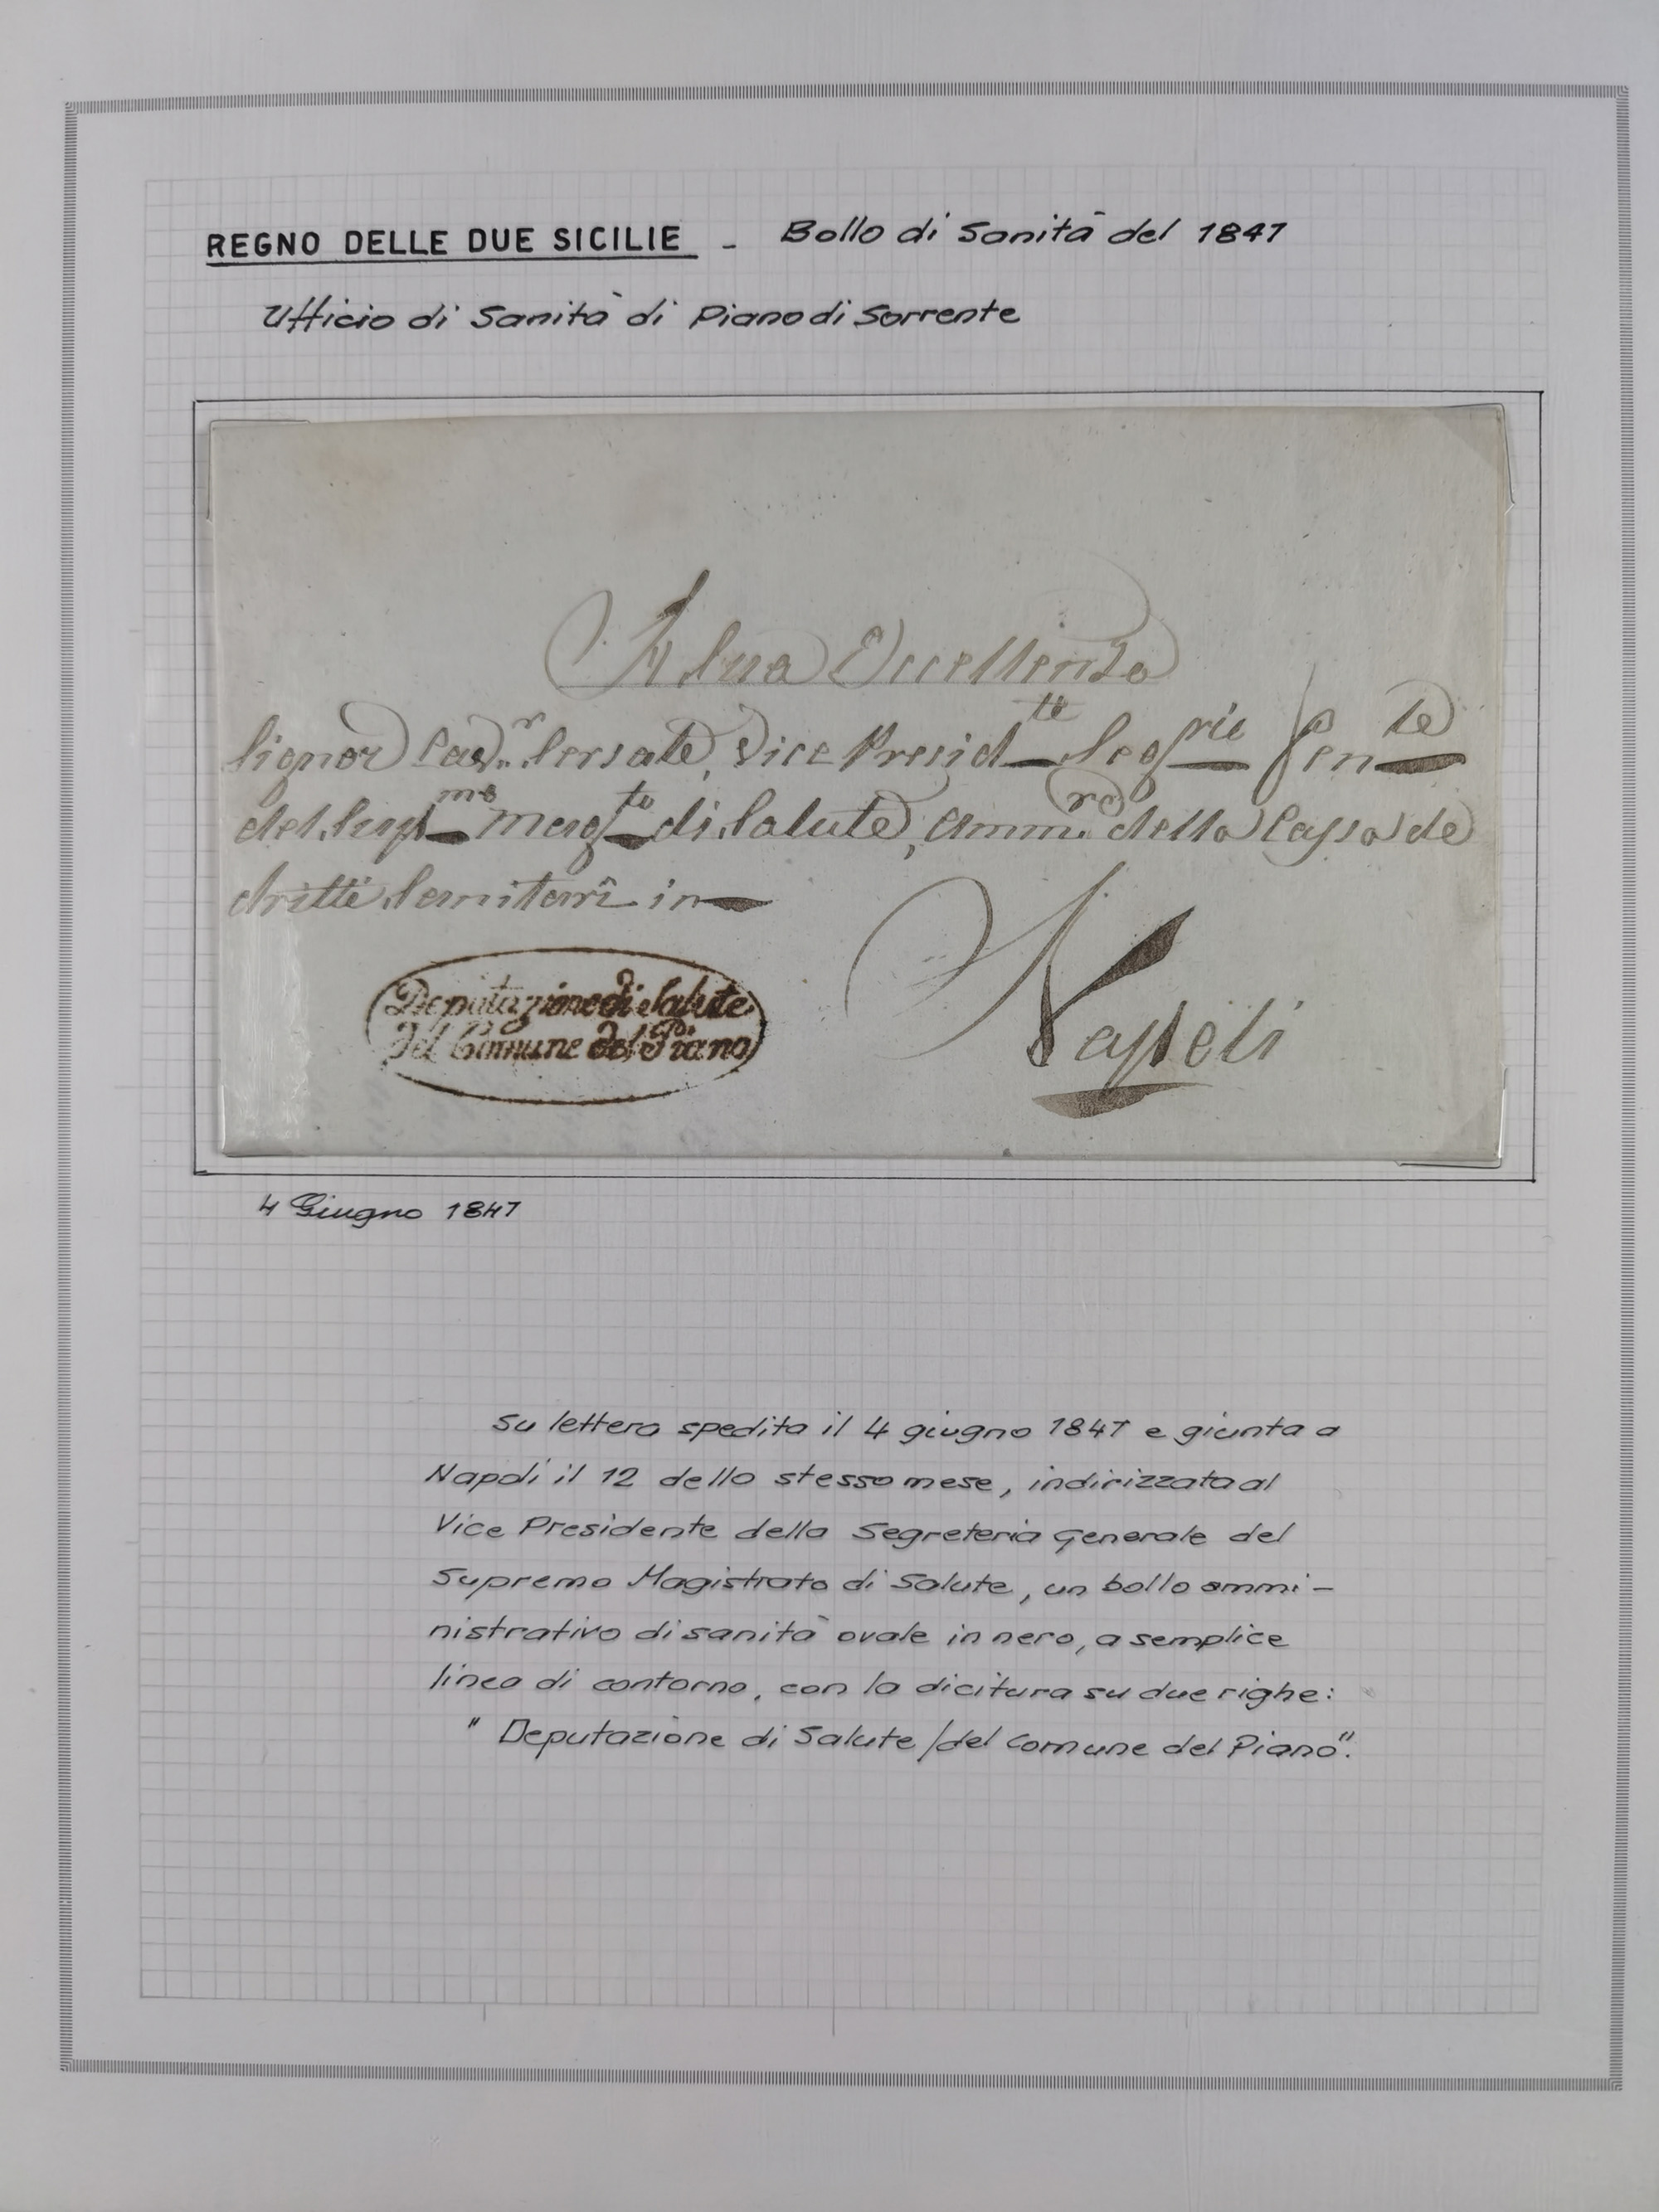 REGNO DELLE DUE SICILIE - Bollo di Sanità del 1847
Ufficio di Sanità di Piano di Sorrente
A Sua Eccellenza
Signor Cav.r Sersale, Vice Presid.te Seg.rie
del Sup.mo Mag.to di Salute, Amm.re della Cassa de
dritti Sanitarî in
Napoli
Deputazione di Salute
del Comune del Piano
4 Giugno 1847
Su lettera spedita il 4 giugno 1847 e giunta a
Napoli il 12 dello stesso mese, indirizzata al
Vice Presidente della Segreteria Generale del
Supremo Magistrato di Salute, un bollo ammi-
nistrativo di sanità ovale in nero, a semplice
linea di contorno, con la dicitura su due righe:
" Deputazione di Salute / del Comune del Piano".